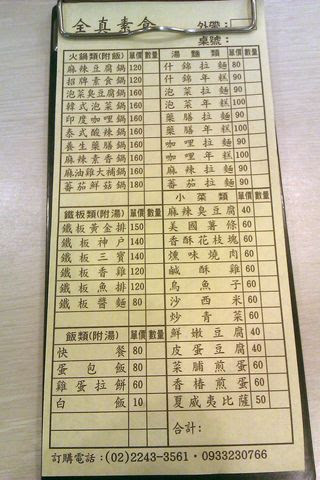 全真素食 外帶:
桌號:
火鍋類(附飯) 單價 數量 湯麵類 單價 數量
麻辣豆腐鍋 120 什錦拉麵 80
招牌素食鍋 120 什錦年糕 90
泡菜臭豆腐鍋 160 泡菜拉麵 90
韓式泡菜鍋 160 泡菜年糕 100
印度咖哩鍋 160 藥膳拉麵 90
泰式酸辣鍋 160 藥膳年糕 100
養生藥膳鍋 160 咖哩拉麵 90
麻辣素香鍋 160 咖哩年糕 100
麻油雞大補鍋 160 麻辣拉麵 90
蕃茄鮮菇鍋 180 蕃茄拉麵 90
小菜類
鐵板類(附湯) 單價 數量 麻辣臭豆腐 40
鐵板黃金排 150 美國薯條 60
鐵板神戶 140 香酥花枝塊 60
鐵板三寶 140 燻味燒肉 60
鐵板香雞 120 鹹酥雞 60
鐵板魚排 120 烏魚子 60
鐵板醬麵 80 沙西米 60
炒青菜 60
飯類(附湯) 單價 數量 鮮嫩豆腐 40
快餐 80 皮蛋豆腐 40
蛋包飯 80 菜脯煎蛋 60
雞蛋拉餅 60 香椿煎蛋 60
白飯 10 夏威夷比薩 50
合計:
訂購電話:(02)2243-3561・0933230766